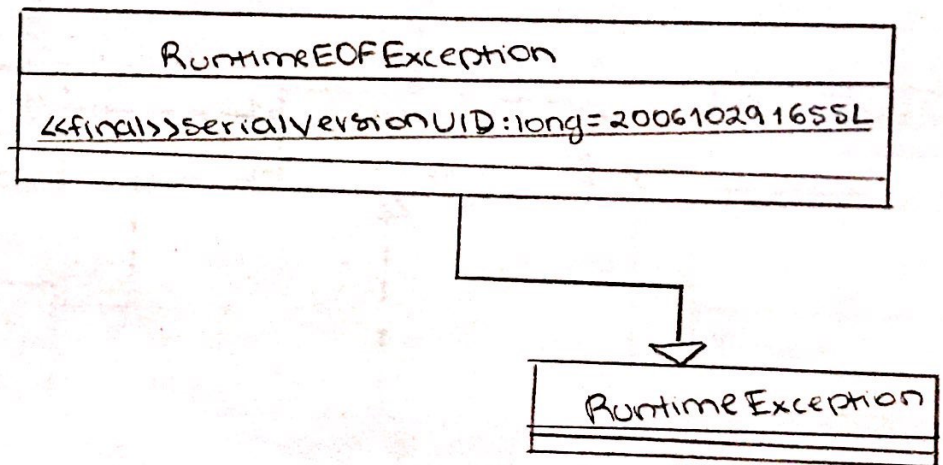 RuntimeEOFException
<<final>>serialVersionUID:long=200610291655L
RuntimeException